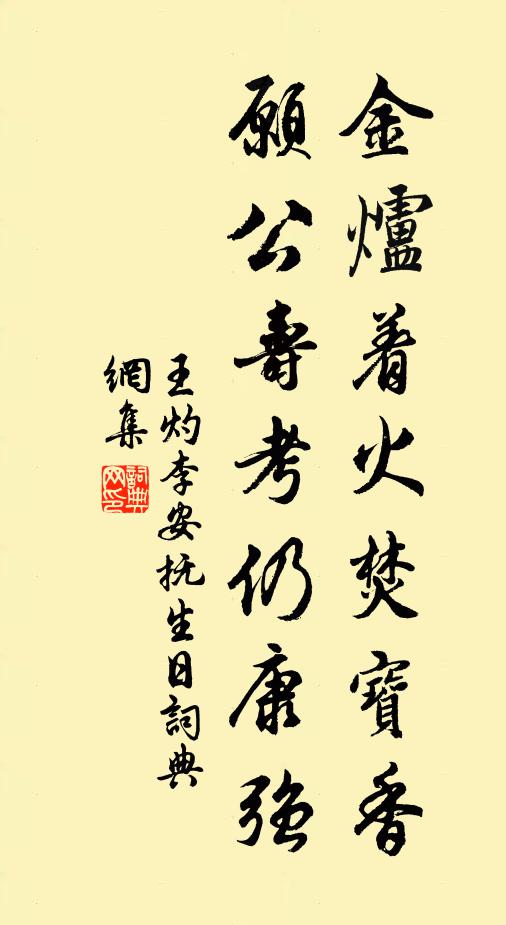 金爐着火焚寶香
願公壽考仍康強
王灼李安抚生日詞典
網集
詞典網印